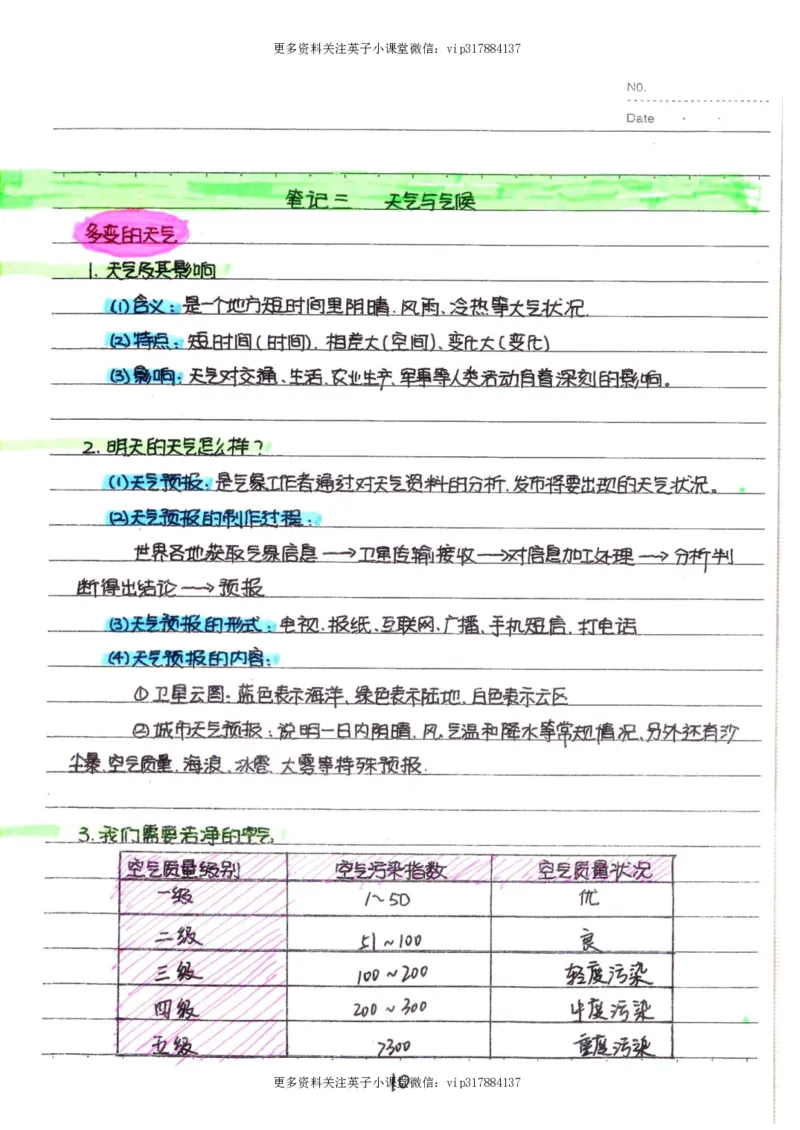 更多资料关注英子小课堂微信：vip317884137
NO.
Date
笔记三 天气与气候
多变的天气
1. 天气及其影响
(1)含义：是一个地方短时间里阴晴、风雨、冷热等大气状况.
(2)特点：短时间(时间)、相差大(空间)、变化大(变化)
(3)影响：天气对交通、生活、农业生产、军事等人类活动有着深刻的影响。
2. 明天的天气怎么样？
(1)天气预报：是气象工作者通过对天气资料的分析，发布将要出现的天气状况。
(2)天气预报的制作过程：
世界各地获取气象信息→卫星传输接收→对信息加工处理→分析判
断得出结论→预报
(3)天气预报的形式：电视、报纸、互联网、广播、手机短信、打电话
(4)天气预报的内容：
①卫星云图：蓝色表示海洋，绿色表示陆地，白色表示云区
②城市天气预报：说明一日内阴晴、风、气温和降水等常规情况，另外还有沙
尘暴、空气质量、海浪、冰雹、大雾等特殊预报.
3. 我们需要洁净的空气
空气质量级别 空气污染指数 空气质量状况
一级 1~50 优
二级 51~100 良
三级 100~200 轻度污染
四级 200~300 中度污染
五级 >300 重度污染
更多资料关注英子小课堂微信：vip317884137
10